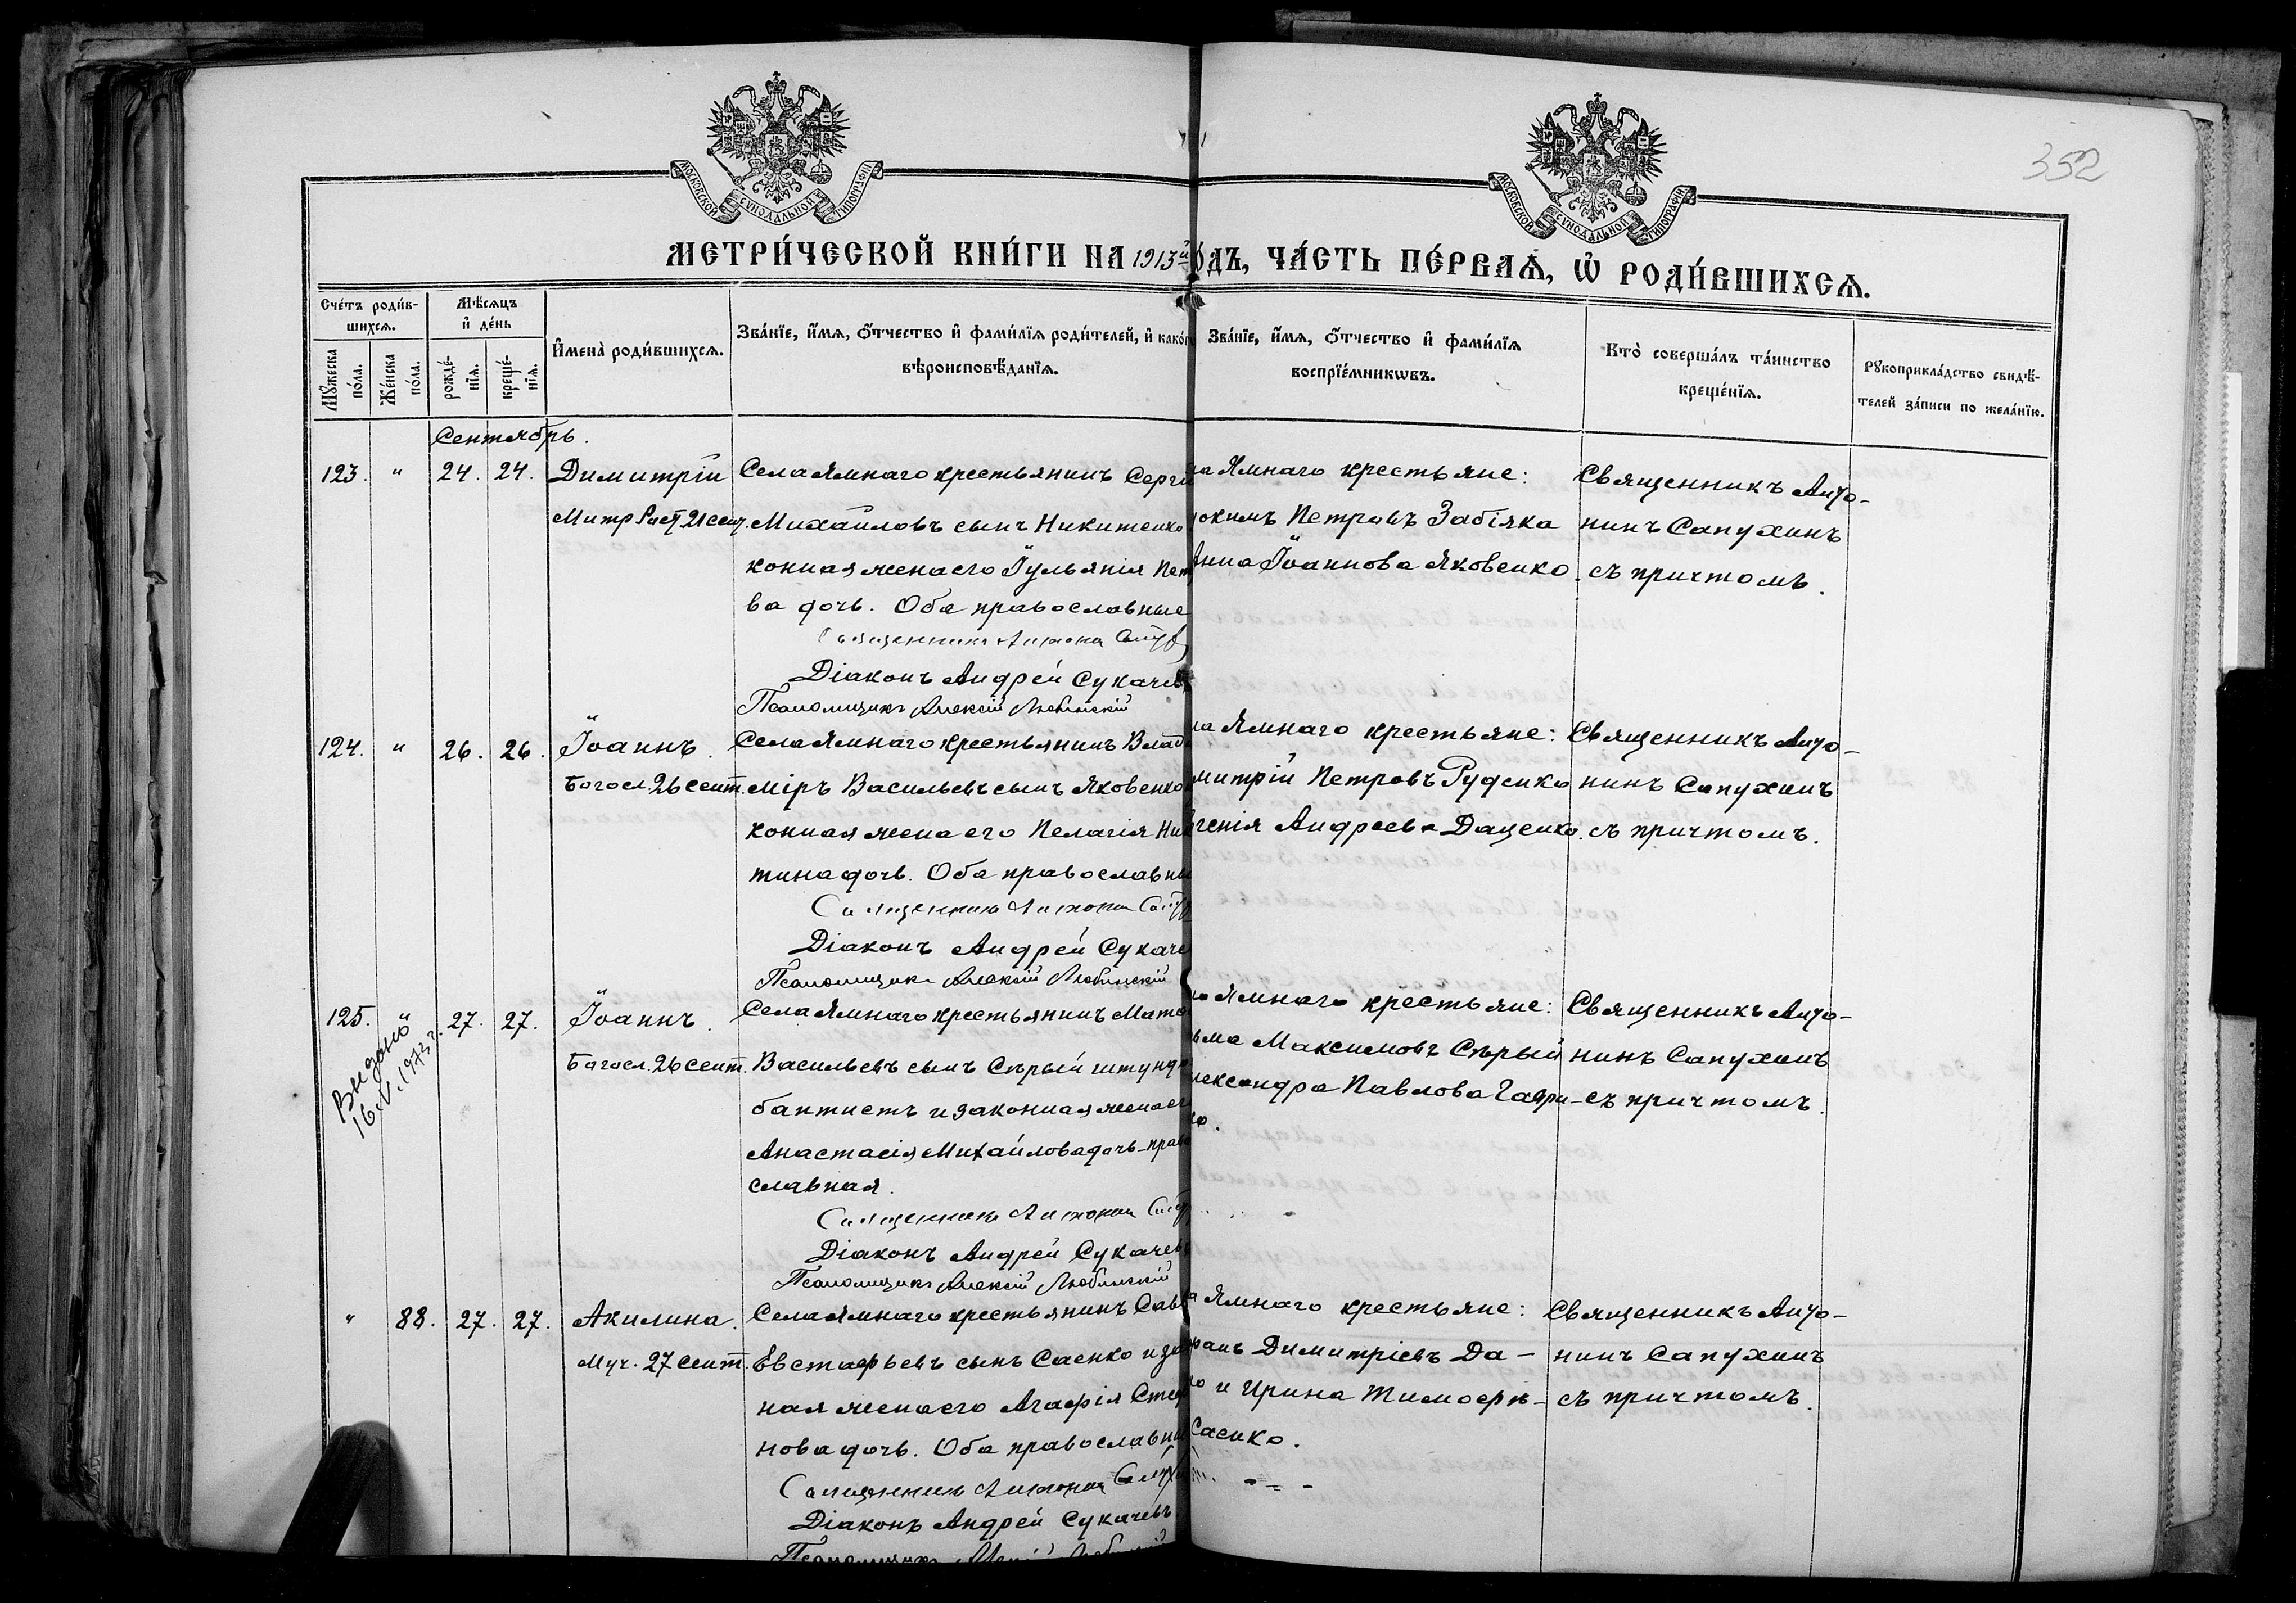 352
МОСКОВСКОЙ СѴНОДАЛЬНОЙ ТИПОГРАФІИ
МОСКОВСКОЙ СѴНОДАЛЬНОЙ ТИПОГРАФІИ
МЕТРИ́ЧЕСКОЙ КНИ́ГИ НА 1913й ГО́ДЪ, ЧА́СТЬ ПЕ́РВАѦ, Ѡ҆ РОДИ́ВШИХСѦ.
Сче́тъ роди́в-
шихсѧ.
Мꙋ́жеска по́ла.
Же́нска по́ла.
Мѣ́сѧцъ
и҆ де́нь
рожде́-
нїѧ.
креще́-
нїѧ.
И҆мена̀ роди́вшихсѧ.
Зва́нїе, и҆́мѧ, ѻ҆́тчество и҆ фами́лїѧ роди́телей, и҆ како́го
вѣроисповѣ́данїѧ.
Зва́нїе, и҆́мѧ, ѻ҆́тчество и҆ фами́лїѧ
воспрїе́мникѡвъ.
Кто̀ соверша́лъ та́инство
креще́нїѧ.
Рꙋкоприкла́дство свидѣ́-
телей за́писи по жела́нїю.
Сентябрь.
123. " 24. 24.
Димитрій
Митр Рост 21 сент.
Села Ямнаго крестьянинъ Сергій
Михайловъ сынъ Никитенко
конная жена его Іульянія Пет
ва дочь. Оба православные
Священникъ Антонин Сапух
Діаконъ Андрей Сукачевъ
Псаломщикъ Алексій Любинскій
ла Ямнаго крестьяне:
докимъ Петровъ Забіяка
Анна Іоаннова Яковенко.
Священникъ Анто-
нинъ Сапухинъ
съ причтомъ.
124. " 26. 26.
Іоаннъ.
Богосл. 26 сент.
Села Ямнаго крестьянинъ Влади
міръ Васильевъ сынъ Яковенко
конная жена его Пелагія Ники
тина дочь. Оба православны
Священникъ Антонин Сапух
Діаконъ Андрей Сукаче
Псаломщикъ Алексій Любинскій
ла Ямнаго крестьяне:
митрій Петровъ Руденко
генія Андреева Даценко.
Священникъ Анто-
нинъ Сапухинъ
съ причтомъ.
125. " 27. 27.
Выдано
16.V.1973 г.
Іоаннъ.
Богосл. 26 сент.
Села Ямнаго крестьянинъ Матѳ
Васильевъ сынъ Сѣрый штундо
баптистъ и законная жена ег
Анастасія Михайлова дочь-право
славная.
Священникъ Антонин Сапух
Діаконъ Андрей Сукачевъ
Псаломщикъ Алексій Любинскій
ла Ямнаго крестьяне:
зьма Максимовъ Сѣрый
лександра Павлова Гаври-
ко.
Священникъ Анто-
нинъ Сапухинъ
съ причтомъ.
" 88. 27. 27.
Акилина.
Муч. 27 сент.
Села Ямнаго крестьянинъ Савва
Евстафьевъ сынъ Саенко и зако
ная жена его Агафія Стеф
нова дочь. Оба православны
Священникъ Антонин Сапухин
Діаконъ Андрей Сукачевъ.
Псаломщикъ Алексій Любинскій
ла Ямнаго крестьяне:
Димитріевъ Да-
ко и Ирина Тимоѳѣ-
Саенко.
Священникъ Анто-
нинъ Сапухинъ
съ причтомъ.